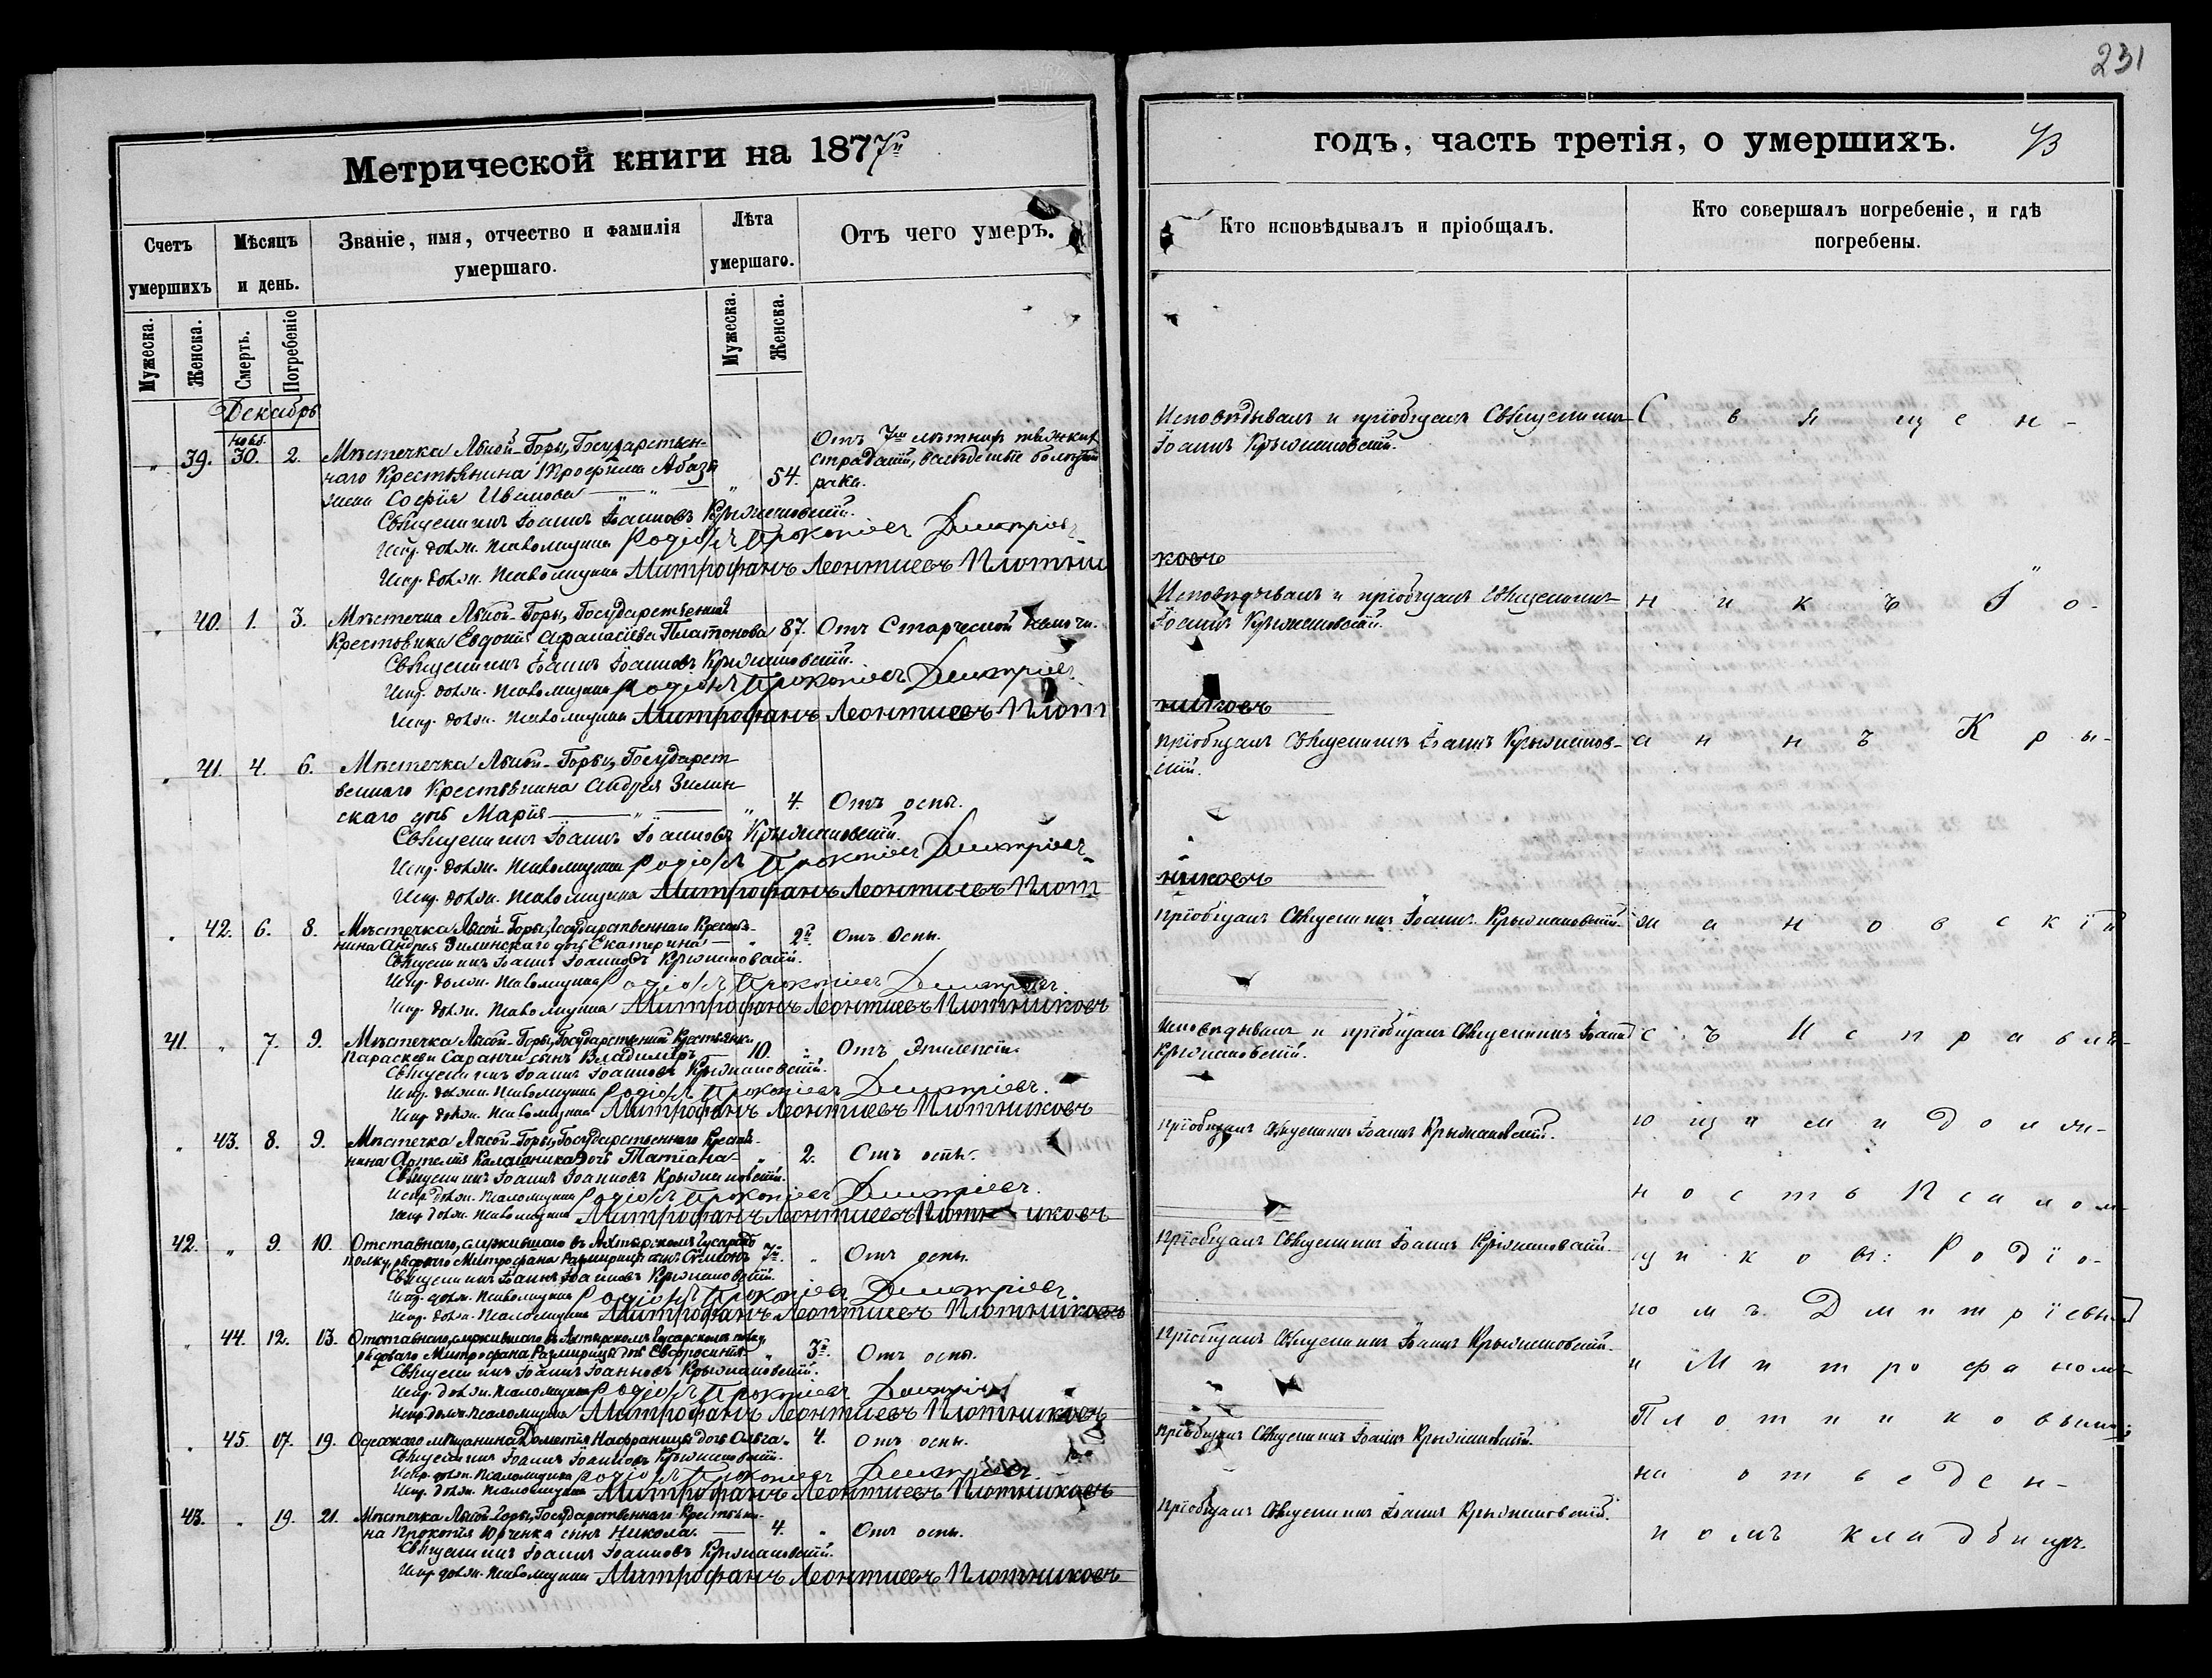 231
Метрической книги на 1877й
годъ, часть третія, о умершихъ.
Счетъ умершихъ
Мѣсяцъ и день.
Званіе, имя, отчество и фамилія умершаго.
Лѣта умершаго.
Отъ чего умеръ.
Кто исповѣдывалъ и пріобщалъ.
Кто совершалъ погребеніе, и гдѣ погребены.
Мужеска.
Женска.
Смерть.
Погребеніе
Мужеска.
Женска.
Декабрь
нояб.
„ 39. 30. 2. Мѣстечка Лысой-Горы, Государствен-
наго Крестьянина Трофима
жена Софія Иванова „ 54.
Отъ 7ми лѣтнихъ тяжкихъ
страданій, вслѣдствіе болѣзни
рака.
Священникъ Іоаннъ Іоанновъ Крыжановскій.
Испр. долж. Псаломщика Родіонъ Прокопіевъ Дмитріевъ
Испр. долж. Псаломщика Митрофанъ Леонтиевъ Плотни
Исповѣдывалъ и пріобщалъ Священникъ
Іоаннъ Крыжановскій.
ковъ
„ 40. 1. 3. Мѣстечка Лысой-Горы, Государственная
Крестьянка Евдокія Афанасіева Платонова 87. Отъ Старческой немочи.
Священникъ Іоаннъ Іоанновъ Крыжановскій.
Испр. долж. Псаломщика Родіонъ Прокопіевъ Дмитріевъ.
Испр. долж. Псаломщика Митрофанъ Леонтиевъ Плот
Исповѣдывалъ и пріобщалъ Священникъ
Іоаннъ Крыжановскій.
никовъ
„ 41. 4. 6. Мѣстечка Лысой-Горы, Государст
веннаго Крестьянина Андрея Зилин-
скаго дочь Марія „ 4. Отъ оспы.
Священникъ Іоаннъ Іоанновъ Крыжановскій.
Испр. долж. Псаломщика Родіонъ Прокопіевъ Дмитріевъ
Испр. долж. Псаломщика Митрофанъ Леонтиевъ Плот
Пріобщалъ Священникъ Іоаннъ Крыжанов-
скій.
никовъ
„ 42. 6. 8. Мѣстечка Лысой-Горы, Государственнаго Крестья-
нина Андрея Зилинскаго дочь Екатерина „ 2. Отъ Оспы.
Священникъ Іоаннъ Іоанновъ Крыжановскій.
Испр. долж. Псаломщика Родіонъ Прокопіевъ Дмитріевъ.
Испр. долж. Псаломщика Митрофанъ Леонтиевъ Плотниковъ
Пріобщалъ Священникъ Іоаннъ Крыжановскій.
41. „ 7. 9. Мѣстечка Лысой-Горы, Государственной Крестьянки
Параскеви Саранчи сынъ Владимиръ 10. „ Отъ Эпилепсіи.
Священникъ Іоаннъ Іоанновъ Крыжановскій.
Испр. должн. Псаломщика Родіонъ Прокопіевъ Дмитріевъ.
Испр. долж. Псаломщика Митрофанъ Леонтиевъ Плотниковъ
Исповѣдывалъ и пріобщалъ Священникъ Іоаннъ
Крыжановскій.
„ 43. 8. 9. Мѣстечка Лысой-Горы, Государственнаго Крестья-
нина дочь Татіана „ 2. Отъ оспы.
Священникъ Іоаннъ Іоанновъ Крыжановскій.
Испр. долж. Псаломщика Родіонъ Прокопіевъ Дмитріевъ.
Испр. долж. Псаломщика Митрофанъ Леонтиевъ Плотниковъ
Пріобщалъ Священникъ Іоаннъ Крыжановскій.
42. „ 9. 10. Отставнаго, служившаго въ Ахтырскомъ Гусарскомъ
полку, рядоваго Митрофана Размирици сынъ Симеонъ 7. „ Отъ оспы.
Священникъ Іоаннъ Іоанновъ Крыжановскій.
Испр. долж. Псаломщика Родіонъ Прокопіевъ Дмитріевъ.
Испр. долж. Псаломщика Митрофанъ Леонтиевъ Плотниковъ
Пріобщалъ Священникъ Іоаннъ Крыжановскій.
„ 44. 12. 13. Отставнаго, служившаго въ Ахтырскомъ Гусарскомъ полку,
рядоваго Митрофана Размирици дочь Евфросинія „ 3. Отъ оспы.
Священникъ Іоаннъ Іоанновъ Крыжановскій.
Испр. долж. Псаломщика Родіонъ Прокопіевъ Дмитріевъ
Испр. долж. Псаломщика Митрофанъ Леонтиевъ Плотниковъ
Пріобщалъ Священникъ Іоаннъ Крыжановскій.
„ 45. 17. 19. Одесскаго мѣщанина дочь Ольга „ 4. Отъ оспы.
Священникъ Іоаннъ Іоанновъ Крыжановскій.
Испр. долж. Псаломщика Родіонъ Прокопіевъ Дмитріевъ
Испр. долж. Псаломщика Митрофанъ Леонтиевъ Плотниковъ
Пріобщалъ Священникъ Іоаннъ Крыжановскій.
43. „ 19. 21. Мѣстечка Лысой-Горы, Государственнаго Крестьяни-
на Прокопія Юрченка сынъ Николай 4. „ Отъ оспы.
Священникъ Іоаннъ Іоанновъ Крыжановскій.
Испр. долж. Псаломщика Митрофанъ Леонтиевъ Плотниковъ
Пріобщалъ Священникъ Іоаннъ Крыжановскій.
Священ-
никъ Іо-
аннъ Кры-
жановскій
съ Исправля-
ющими долж-
ность Псалом-
щиковъ: Родіо-
номъ Дмитріевымъ
и Митрофаномъ
Плотниковымъ;
на отведен-
номъ кладбищѣ.